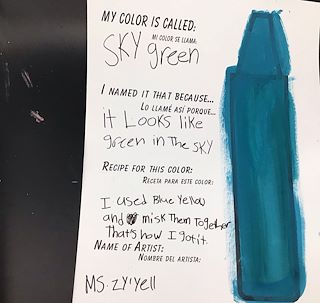 MY COLOR IS CALLED:
MI COLOR SE LLAMA:
SKY green
I NAMED IT THAT BECAUSE...
LO LLAMÉ ASÍ PORQUE...
it Looks like
green in The SKY
RECIPE FOR THIS COLOR:
RECETA PARA ESTE COLOR:
I used Blue Yellow
and misk Them Together
That's how I got it.
NAME OF ARTIST:
NOMBRE DEL ARTISTA:
MS. ZY'Yell